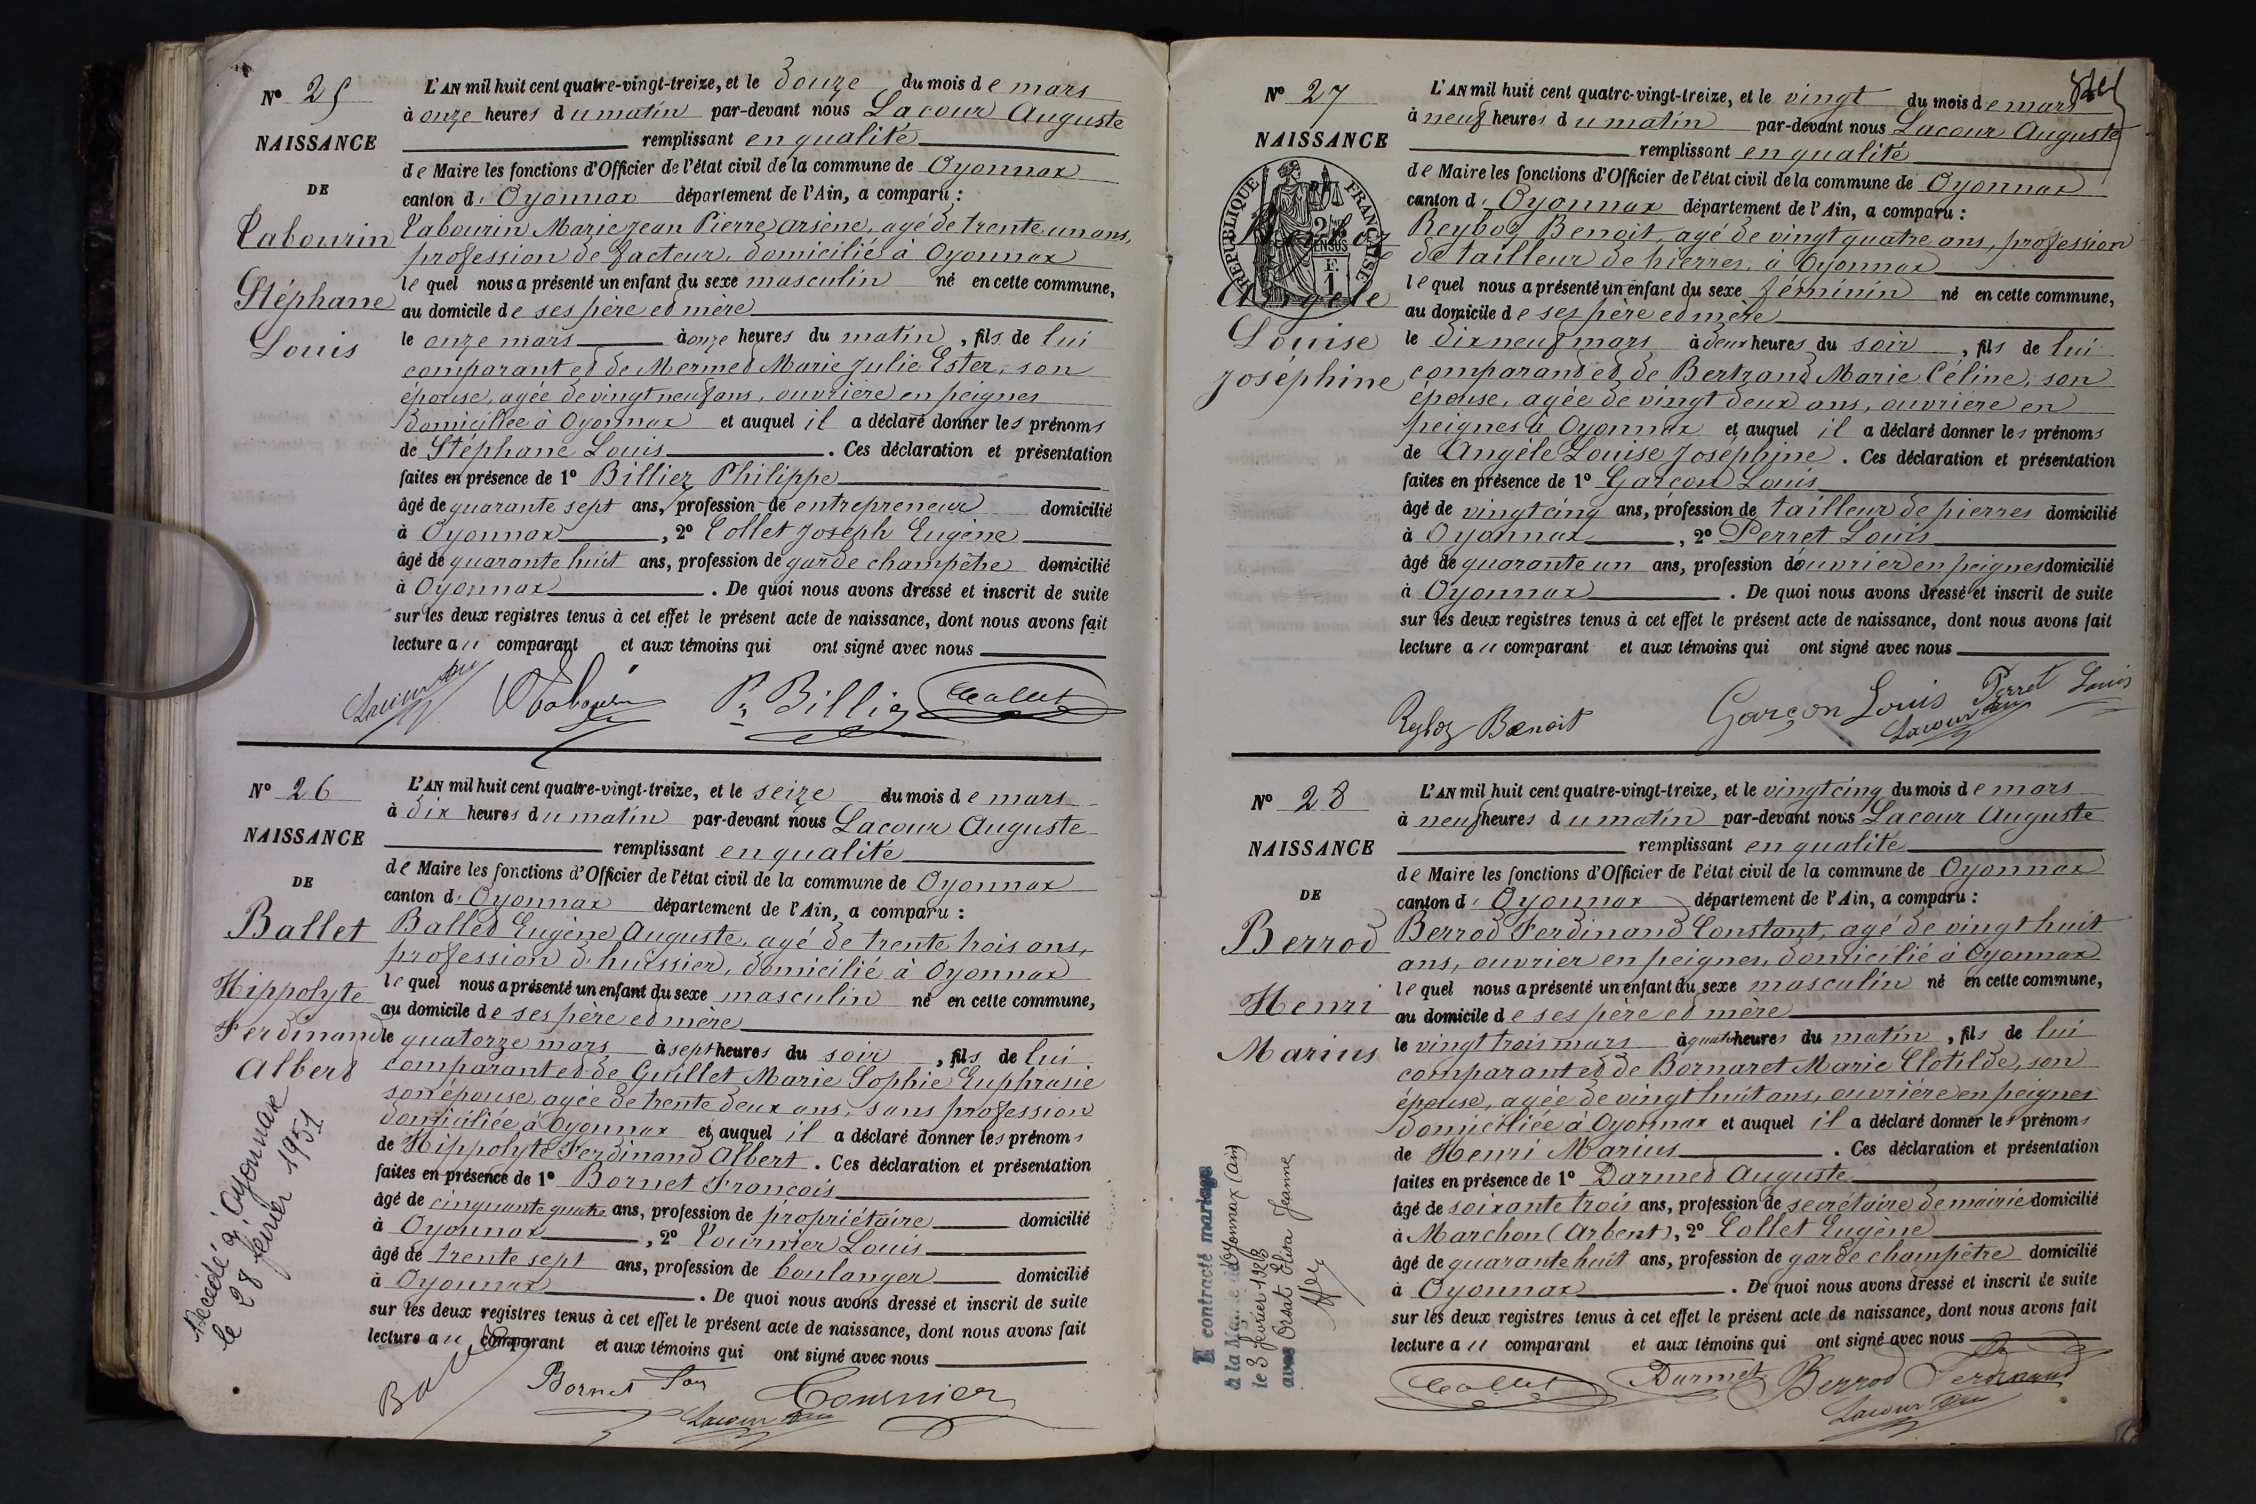 N° 25
NAISSANCE
DE
Tabourin
Stéphane
Louis
L'AN mil huit cent quatre-vingt-treize, et le douze du mois de mars
à onze heures du matin par-devant nous Lacour Auguste
remplissant en qualité
de Maire les fonctions d'Officier de l'état civil de la commune de Oyonnax
canton d'Oyonnax département de l'Ain, a comparu :
Tabourin Marie Jean Pierre Arsène, agé de trente un ans,
profession de facteur, domicilié à Oyonnax
lequel nous a présenté un enfant du sexe masculin né en cette commune,
au domicile de ses père et mère
le onze mars à onze heures du matin, fils de lui
comparant et de Mermed Marie Julie Ester, son
épouse, agée de vingt neuf ans, ouvrière en peignes
domiciliée à Oyonnax et auquel il a déclaré donner les prénoms
de Stéphane Louis. Ces déclaration et présentation
faites en présence de 1° Billiez Philippe
âgé de quarante sept ans, profession de entrepreneur domicilié
à Oyonnax, 2° Collet Joseph Eugène
âgé de quarante huit ans, profession de garde champêtre domicilié
à Oyonnax. De quoi nous avons dressé et inscrit de suite
sur les deux registres tenus à cet effet le présent acte de naissance, dont nous avons fait
lecture au comparant et aux témoins qui ont signé avec nous
Tabourin P. Billiez Collet
N° 26
NAISSANCE
DE
Ballet
Hippolyte
Ferdinand
Albert
Décédé à Oyonnax
le 28 février 1951
L'AN mil huit cent quatre-vingt-treize, et le seize du mois de mars
à dix heures du matin par-devant nous Lacour Auguste
remplissant en qualité
de Maire les fonctions d'Officier de l'état civil de la commune de Oyonnax
canton d'Oyonnax département de l'Ain, a comparu :
Ballet Eugène Auguste, agé de trente trois ans,
profession d'huissier, domicilié à Oyonnax
lequel nous a présenté un enfant du sexe masculin né en cette commune,
au domicile de ses père et mère
le quatorze mars à sept heures du soir, fils de lui
comparant et de Guillet Marie Sophie Euphrasie
son épouse, agée de trente deux ans, sans profession
domiciliée à Oyonnax et auquel il a déclaré donner les prénoms
de Hippolyte Ferdinand Albert. Ces déclaration et présentation
faites en présence de 1° Bornet François
âgé de cinquante quatre ans, profession de propriétaire domicilié
à Oyonnax, 2° Tournier Louis
âgé de trente sept ans, profession de boulanger domicilié
à Oyonnax. De quoi nous avons dressé et inscrit de suite
sur les deux registres tenus à cet effet le présent acte de naissance, dont nous avons fait
lecture au comparant et aux témoins qui ont signé avec nous
Bornet Tournier
N° 27
NAISSANCE
REPUBLIQUE FRANÇAISE
Reyboz
Angèle
Louise
Joséphine
L'AN mil huit cent quatre-vingt-treize, et le vingt du mois de mars
à neuf heures du matin par-devant nous Lacour Auguste
remplissant en qualité
de Maire les fonctions d'Officier de l'état civil de la commune de Oyonnax
canton d'Oyonnax département de l'Ain, a comparu :
Reyboz Benoit, agé de vingt quatre ans, profession
de tailleur de pierres, à Oyonnax
lequel nous a présenté un enfant du sexe féminin né en cette commune,
au domicile de ses père et mère
le dix neuf mars à deux heures du soir, fils de lui
comparand et de Bertrand Marie Céline, son
épouse, agée de vingt deux ans, ouvrière en
peignes à Oyonnax et auquel il a déclaré donner les prénoms
de Angèle Louise Joséphine. Ces déclaration et présentation
faites en présence de 1° Garçon Louis
âgé de vingt cinq ans, profession de tailleur de pierres domicilié
à Oyonnax, 2° Perret Louis
âgé de quarante un ans, profession d'ouvrier en peignes domicilié
à Oyonnax. De quoi nous avons dressé et inscrit de suite
sur les deux registres tenus à cet effet le présent acte de naissance, dont nous avons fait
lecture au comparant et aux témoins qui ont signé avec nous
Reyboz Benoit Garçon Louis Perret Louis
N° 28
NAISSANCE
DE
Berrod
Henri
Marius
A contracté mariage
à la Mairie d'Oyonnax (Ain)
le 3 février 1923
avec Orsat Elisa Jeanne
L'AN mil huit cent quatre-vingt-treize, et le vingt cinq du mois de mars
à neuf heures du matin par-devant nous Lacour Auguste
remplissant en qualité
de Maire les fonctions d'Officier de l'état civil de la commune de Oyonnax
canton d'Oyonnax département de l'Ain, a comparu :
Berrod Ferdinand Constant, agé de vingt huit
ans, ouvrier en peignes, domicilié à Oyonnax
lequel nous a présenté un enfant du sexe masculin né en cette commune,
au domicile de ses père et mère
le vingt trois mars à quatre heures du matin, fils de lui
comparant et de Bornaret Marie Clotilde, son
épouse, agée de vingt huit ans, ouvrière en peignes
domiciliée à Oyonnax et auquel il a déclaré donner les prénoms
de Henri Marius. Ces déclaration et présentation
faites en présence de 1° Darmed Auguste
âgé de soixante trois ans, profession de secrétaire de mairie domicilié
à Marchon (Arbent), 2° Collet Eugène
âgé de quarante huit ans, profession de garde champêtre domicilié
à Oyonnax. De quoi nous avons dressé et inscrit de suite
sur les deux registres tenus à cet effet le présent acte de naissance, dont nous avons fait
lecture au comparant et aux témoins qui ont signé avec nous
Collet Darmet Berrod Ferdinand